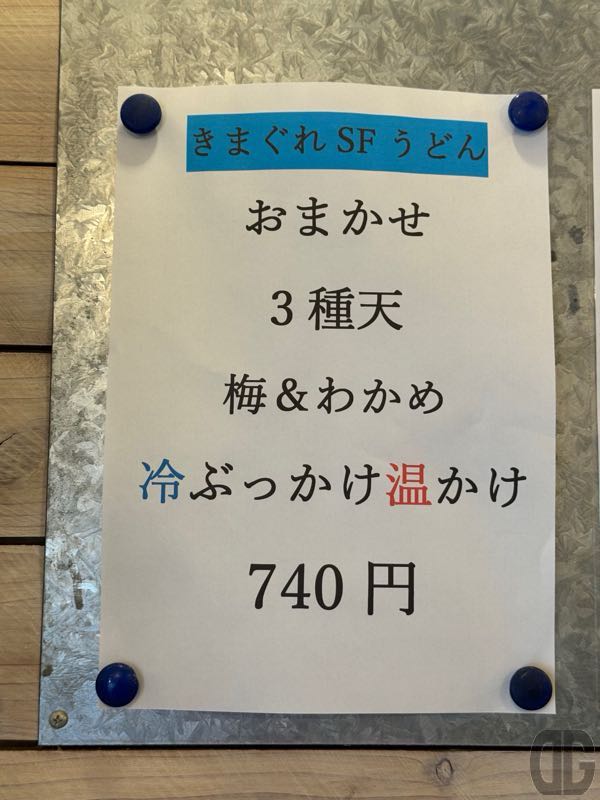 きまぐれSFうどん
おまかせ
3種天
梅&わかめ
冷ぶっかけ温かけ
740円
DG